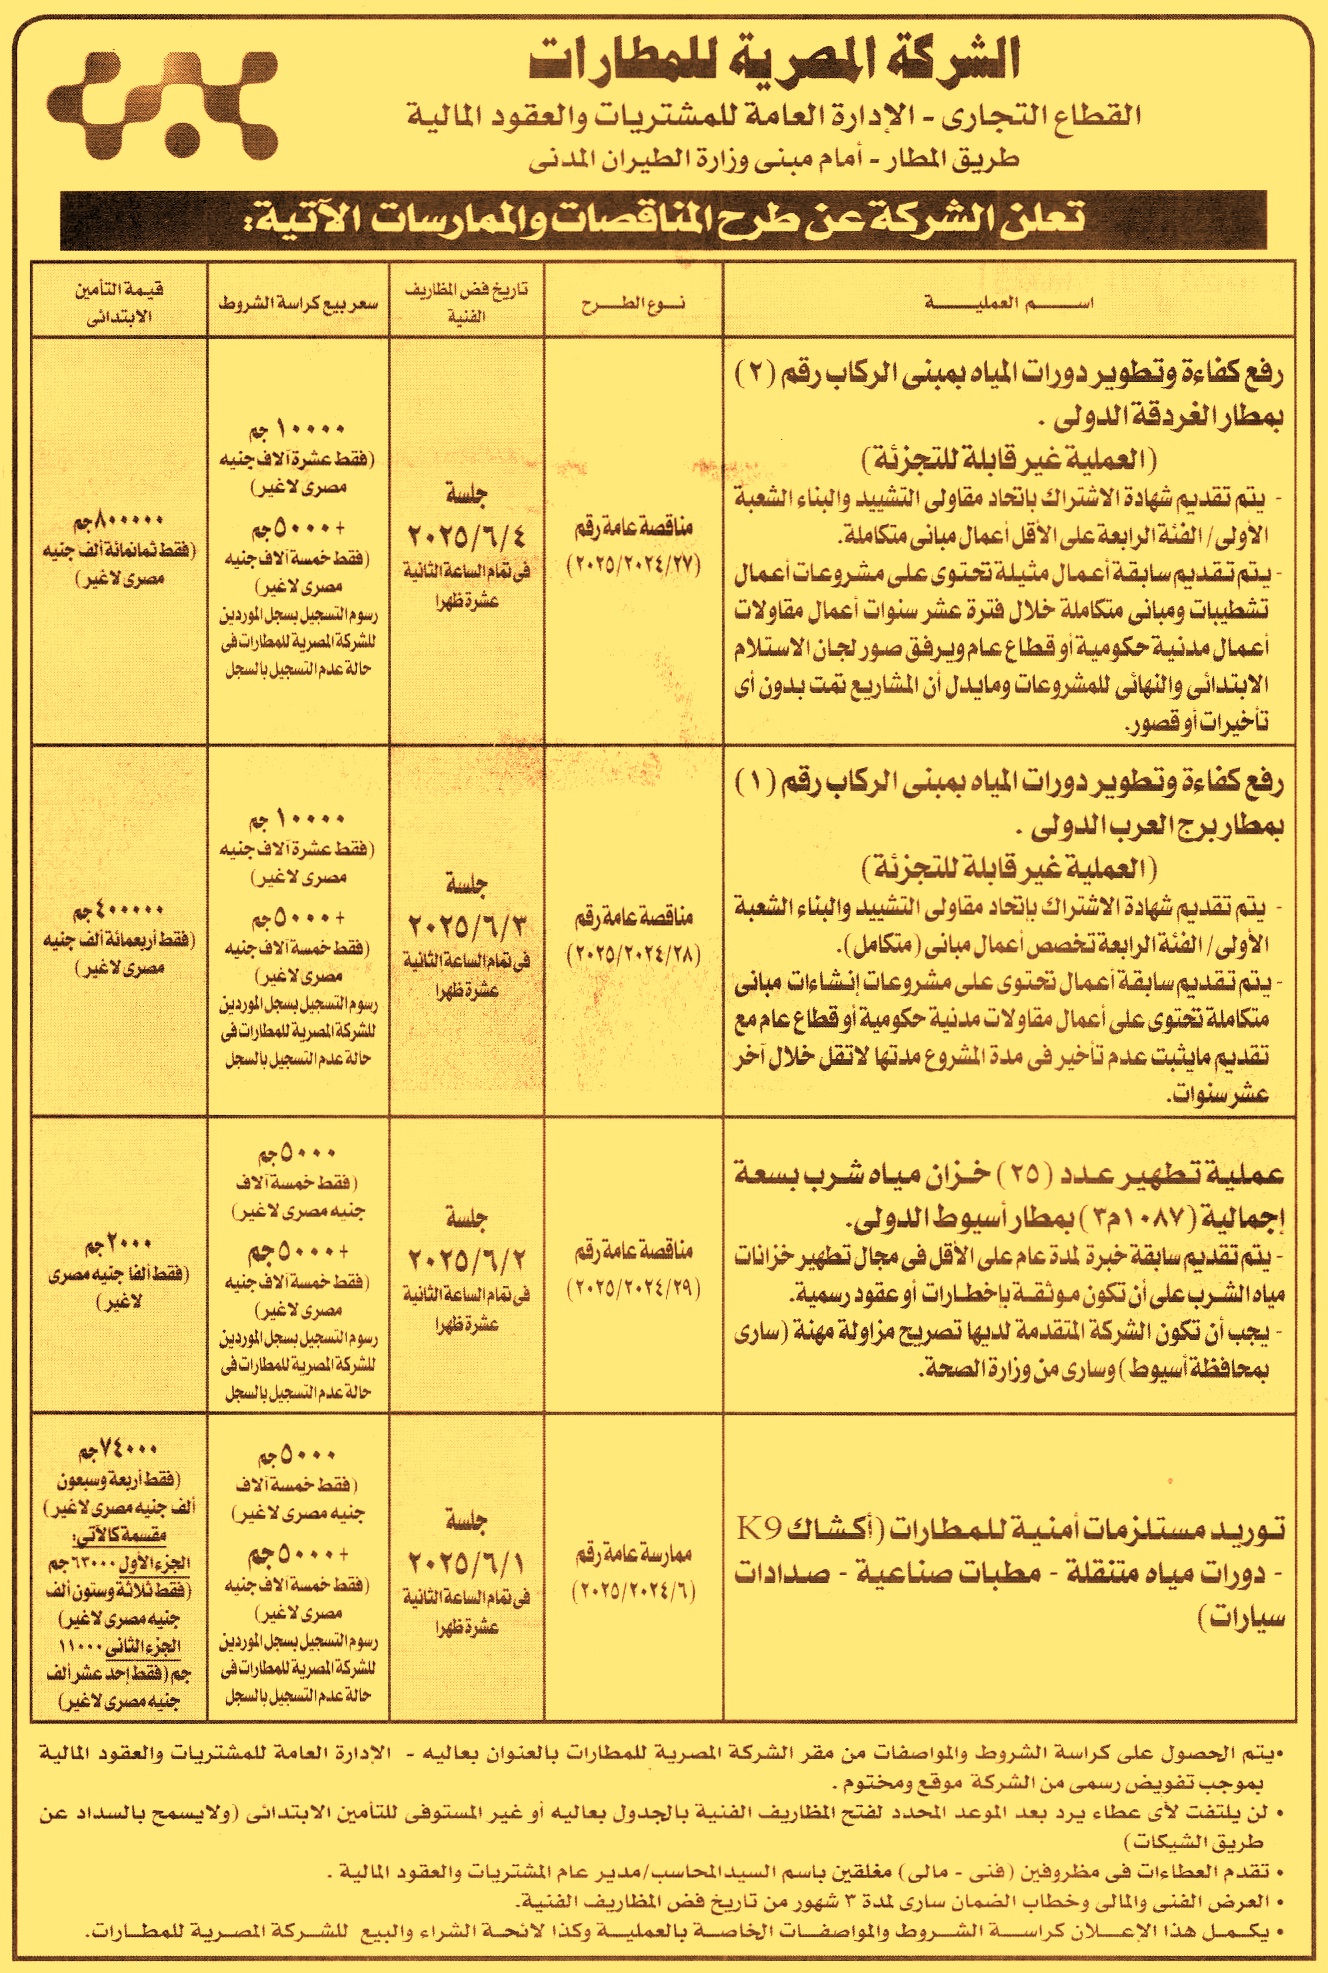 الشركة المصرية للمطارات
القطاع التجارى - الإدارة العامة للمشتريات والعقود المالية
طريق المطار - أمام مبنى وزارة الطيران المدنى
تعلن الشركة عن طرح المناقصات والممارسات الآتية:
اسم العملية
نوع الطرح
تاريخ فض المظاريف
الفنية
سعر بيع كراسة الشروط
قيمة التأمين
الابتدائى
رفع كفاءة وتطوير دورات المياه بمبنى الركاب رقم (٢)
بمطار الغردقة الدولى .
(العملية غير قابلة للتجزئة)
- يتم تقديم شهادة الاشتراك باتحاد مقاولى التشييد والبناء الشعبة
الأولى/ الفئة الرابعة على الأقل أعمال مبانى متكاملة.
- يتم تقديم سابقة أعمال مثيلة تحتوى على مشروعات أعمال
تشطيبات ومبانى متكاملة خلال فترة عشر سنوات أعمال مقاولات
أعمال مدنية حكومية أو قطاع عام ويرفق صور لجان الاستلام
الابتدائى والنهائى للمشروعات ومايدل أن المشاريع تمت بدون أى
تأخيرات أو قصور.
مناقصة عامة رقم
(٢٠٢٥/٢٠٢٤/٢٧)
جلسة
٢٠٢٥/٦/٤
فى تمام الساعة الثانية
عشرة ظهرا
١٠٠٠٠ جم
(فقط عشرة آلاف جنيه
مصرى لاغير)
+ ٥٠٠٠ جم
(فقط خمسة آلاف جنيه
مصرى لاغير)
رسوم التسجيل بسجل الموردين
للشركة المصرية للمطارات فى
حالة عدم التسجيل بالسجل
٨٠٠٠٠٠ جم
(فقط ثمانمائة ألف جنيه
مصرى لاغير)
رفع كفاءة وتطوير دورات المياه بمبنى الركاب رقم (١)
بمطار برج العرب الدولى .
(العملية غير قابلة للتجزئة)
- يتم تقديم شهادة الاشتراك بإتحاد مقاولى التشييد والبناء الشعبة
الأولى/ الفئة الرابعة تخصص أعمال مبانى (متكامل).
- يتم تقديم سابقة أعمال تحتوى على مشروعات إنشاءات مبانى
متكاملة تحتوى على أعمال مقاولات مدنية حكومية أو قطاع عام مع
تقديم مايثبت عدم تأخير فى مدة المشروع مدتها لاتقل خلال آخر
عشر سنوات.
مناقصة عامة رقم
(٢٠٢٥/٢٠٢٤/٢٨)
جلسة
٢٠٢٥/٦/٣
فى تمام الساعة الثانية
عشرة ظهرا
١٠٠٠٠ جم
(فقط عشرة آلاف جنيه
مصرى لاغير)
+ ٥٠٠٠ جم
(فقط خمسة آلاف جنيه
مصرى لاغير)
رسوم التسجيل بسجل الموردين
للشركة المصرية للمطارات فى
حالة عدم التسجيل بالسجل
٤٠٠٠٠٠ جم
(فقط أربعمائة ألف جنيه
مصرى لاغير)
عملية تطهير عدد (٢٥) خزان مياه شرب بسعة
إجمالية (١٠٨٧م٣) بمطار أسيوط الدولى.
- يتم تقديم سابقة خبرة لمدة عام على الأقل فى مجال تطهير خزانات
مياه الشرب على أن تكون موثقة بإخطارات أو عقود رسمية.
- يجب أن تكون الشركة المتقدمة لديها تصريح مزاولة مهنة (سارى
بمحافظة أسيوط) وسارى من وزارة الصحة.
مناقصة عامة رقم
(٢٠٢٥/٢٠٢٤/٢٩)
جلسة
٢٠٢٥/٦/٢
فى تمام الساعة الثانية
عشرة ظهرا
٥٠٠٠ جم
(فقط خمسة آلاف
جنيه مصرى لاغير)
+ ٥٠٠٠ جم
(فقط خمسة آلاف جنيه
مصرى لاغير)
رسوم التسجيل بسجل الموردين
للشركة المصرية للمطارات فى
حالة عدم التسجيل بالسجل
٢٠٠٠ جم
(فقط ألفا جنيه مصرى
لاغير)
توريد مستلزمات أمنية للمطارات (أكشاك K9
- دورات مياه متنقلة - مطبات صناعية - صدادات
سيارات)
ممارسة عامة رقم
(٢٠٢٥/٢٠٢٤/٦)
جلسة
٢٠٢٥/٦/١
فى تمام الساعة الثانية
عشرة ظهرا
٥٠٠٠ جم
(فقط خمسة آلاف
جنيه مصرى لاغير)
+ ٥٠٠٠ جم
(فقط خمسة آلاف جنيه
مصرى لاغير)
رسوم التسجيل بسجل الموردين
للشركة المصرية للمطارات فى
حالة عدم التسجيل بالسجل
٧٤٠٠٠ جم
(فقط أربعة وسبعون
ألف جنيه مصرى لاغير)
مقسمة كالآتى:
الجزء الأول ٦٣٠٠٠ جم
(فقط ثلاثة وستون ألف
جنيه مصرى لاغير)
الجزء الثانى ١١٠٠٠
جم (فقط إحد عشر ألف
جنيه مصرى لاغير)
•يتم الحصول على كراسة الشروط والمواصفات من مقر الشركة المصرية للمطارات بالعنوان بعاليه - الإدارة العامة للمشتريات والعقود المالية
بموجب تفويض رسمى من الشركة موقع ومختوم .
• لن يلتفت لأى عطاء يرد بعد الموعد المحدد لفتح المظاريف الفنية بالجدول بعاليه أو غير المستوفى للتأمين الابتدائى (ولايسمح بالسداد عن
طريق الشيكات)
• تقدم العطاءات فى مظروفين (فنى - مالى) مغلقين باسم السيد المحاسب/مدير عام المشتريات والعقود المالية .
• العرض الفنى والمالى وخطاب الضمان سارى لمدة ٣ شهور من تاريخ فض المظاريف الفنية.
• يكمل هذا الإعلان كراسة الشروط والمواصفات الخاصة بالعملية وكذا لائحة الشراء والبيع للشركة المصرية للمطارات.